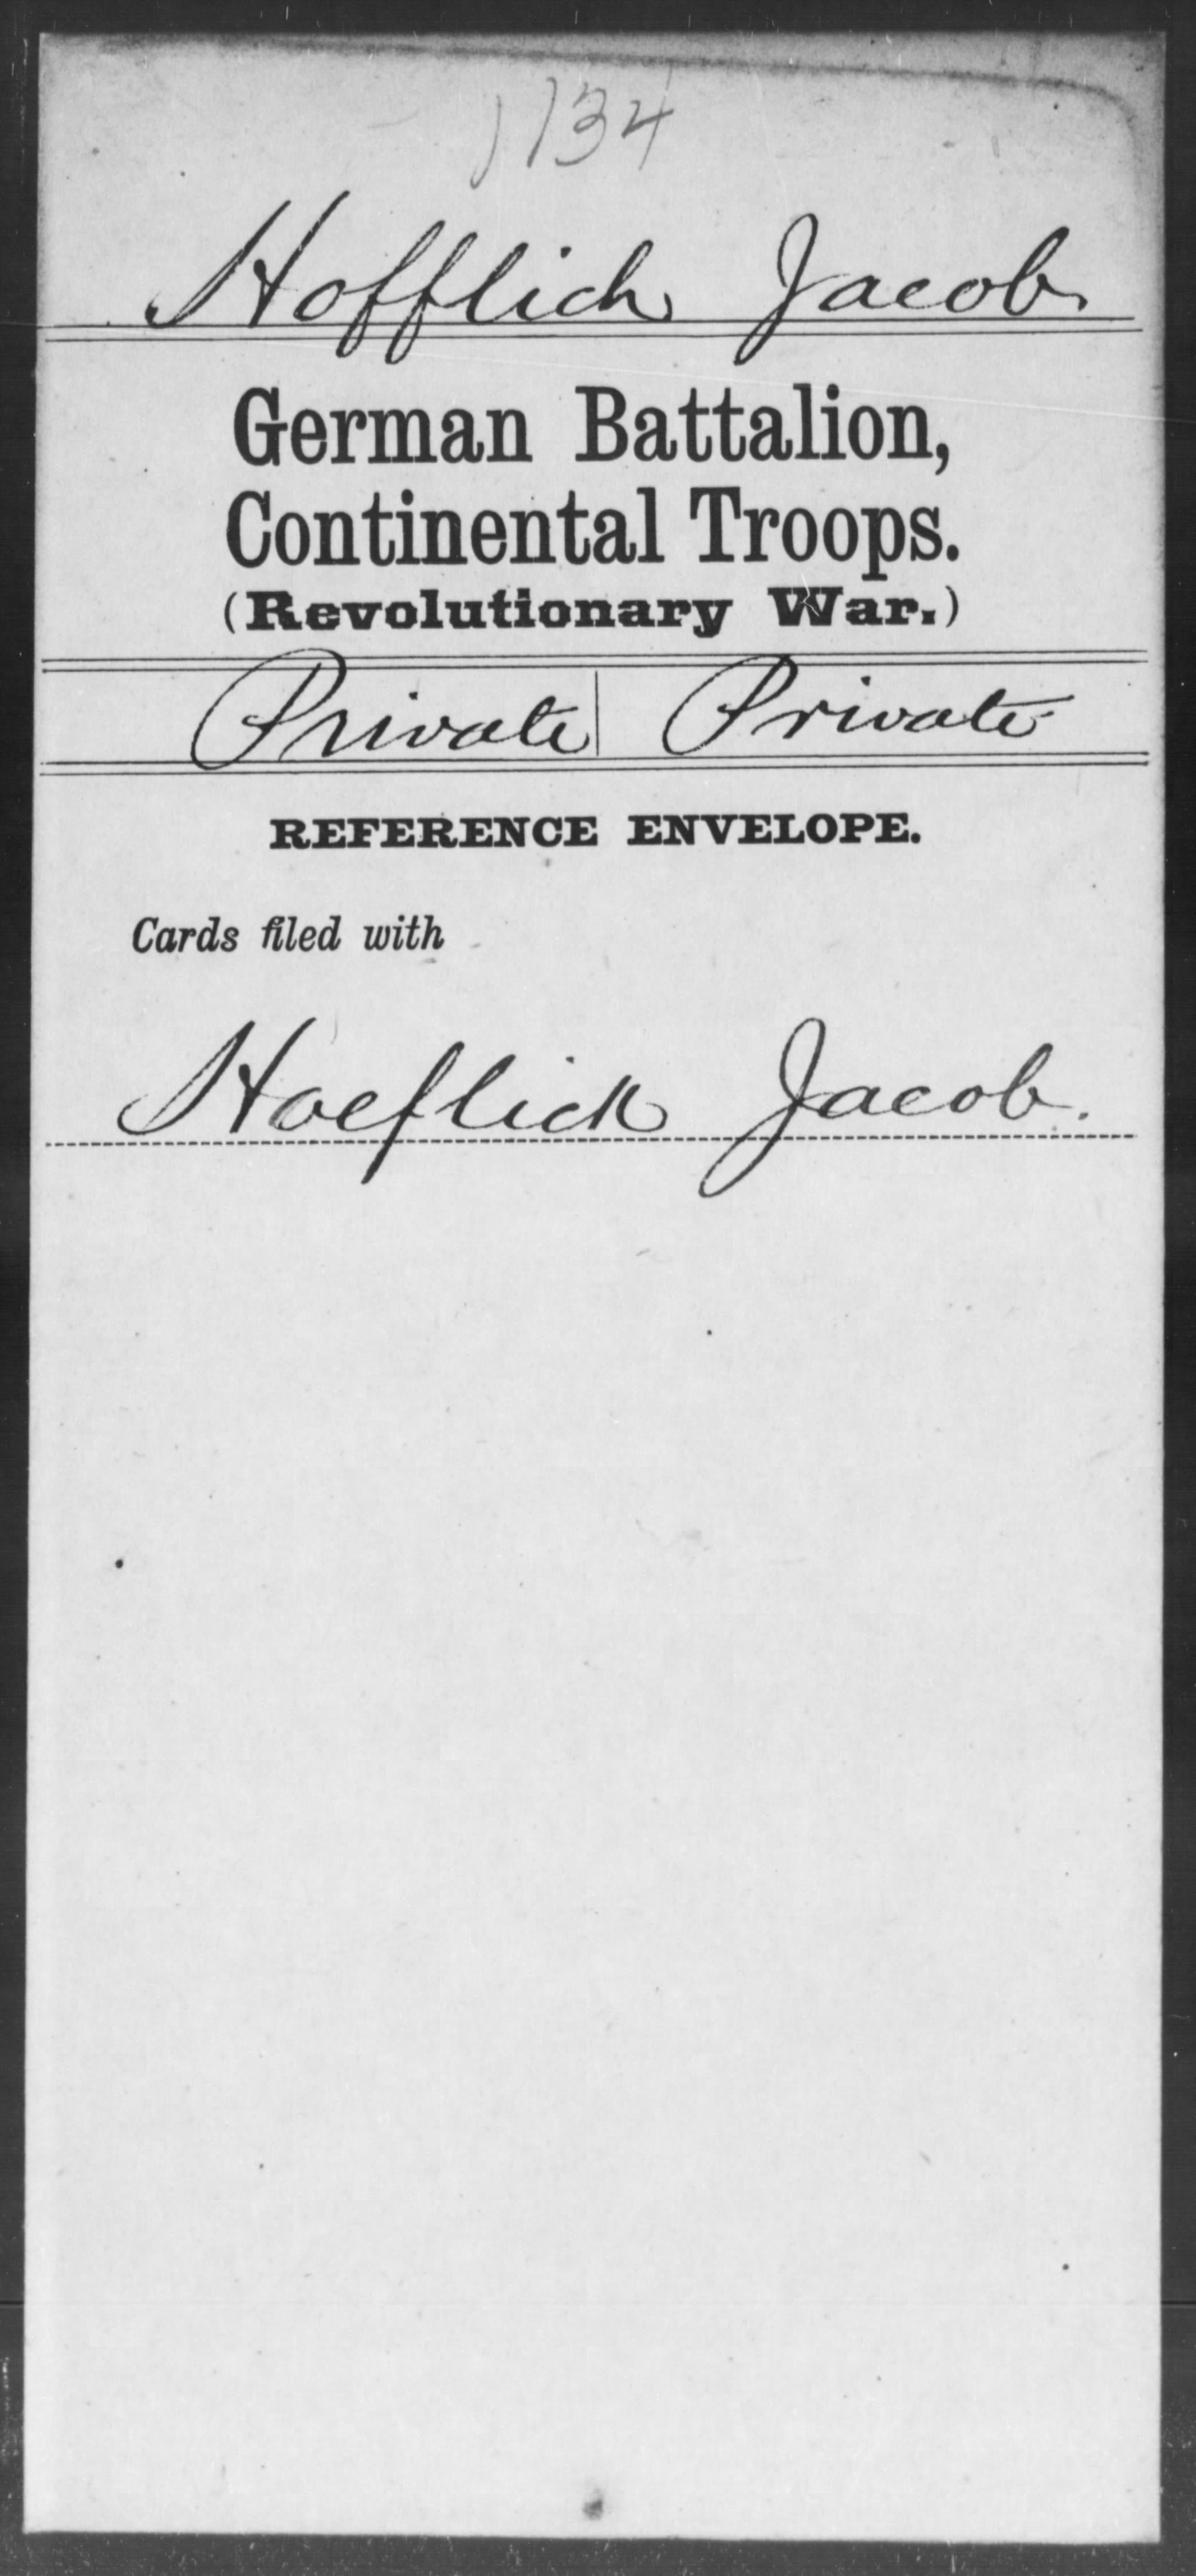 1134
Hofflich Jacob
German Battalion,
Continental Troops.
(Revolutionary War.)
Private | Private
REFERENCE ENVELOPE.
Cards filed with
Hoeflick Jacob.